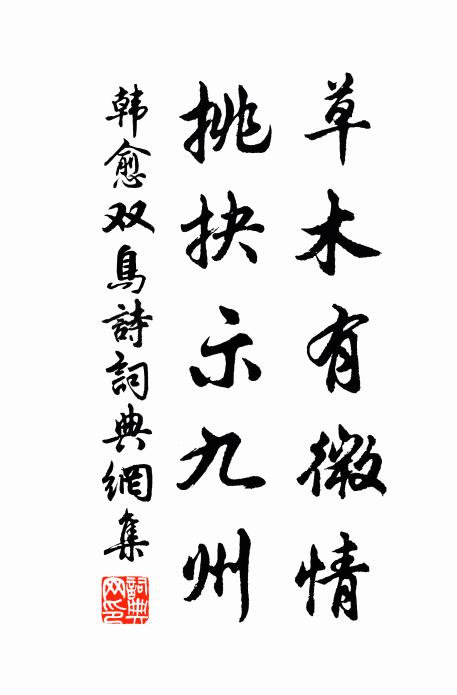 草木有微情
挑抉示九州
韩愈双鳥詩詞典網集
詞典网印